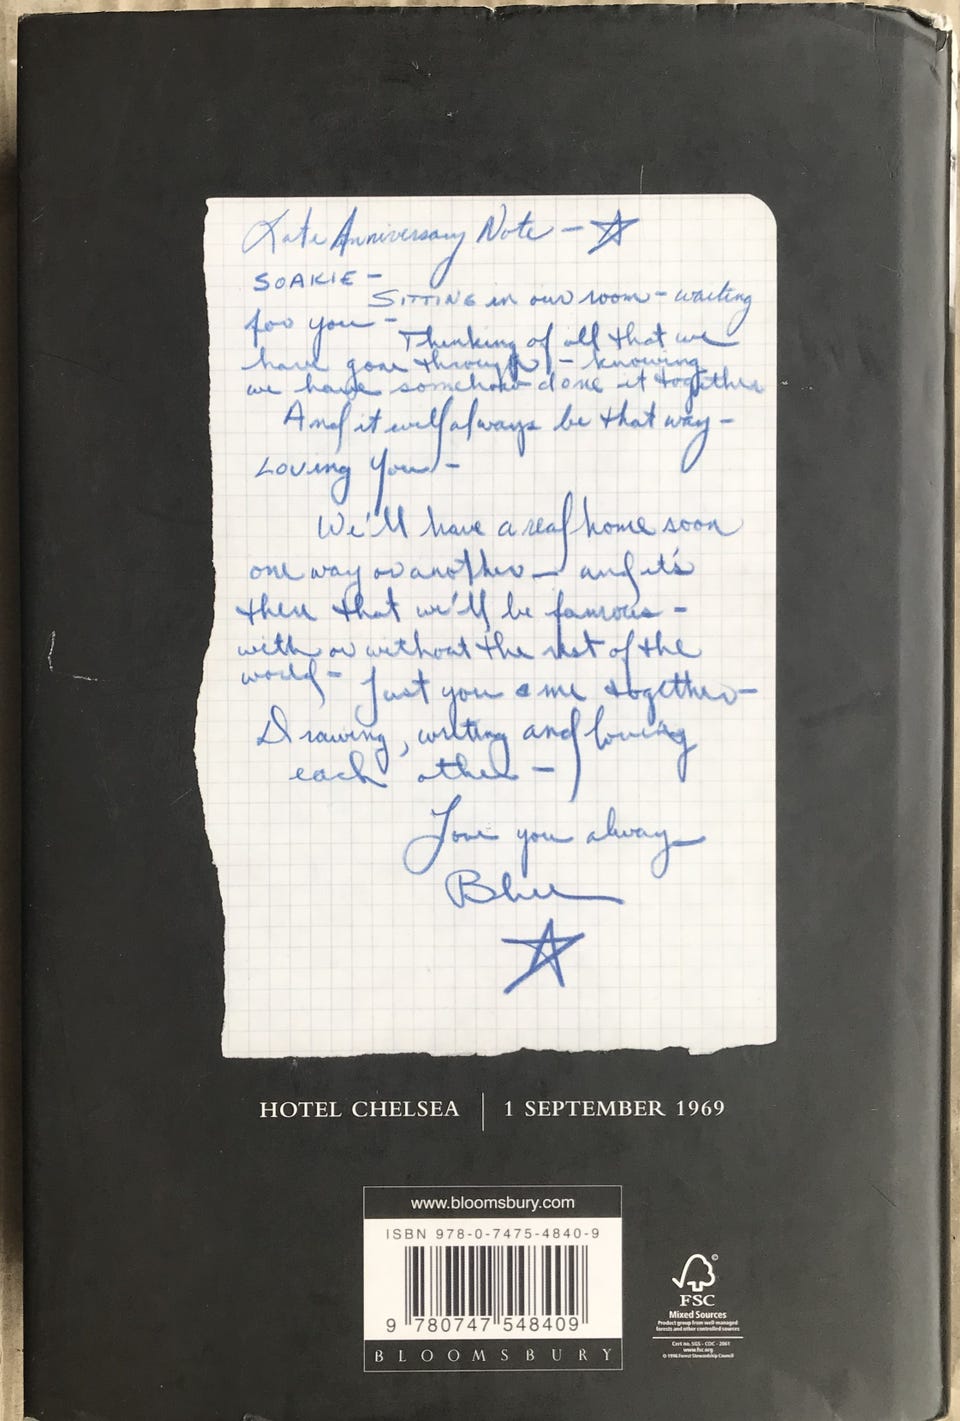 Late Anniversary Note — ☆
SOAKIE —
SITTING in our room — waiting
for you —
Thinking of all that we
have gone through — knowing
we have somehow done it together
And it will always be that way —
LOVing You —
We'll have a real home soon
one way or another — and it's
then that we'll be famous —
with or without the rest of the
world — Just you & me together —
Drawing, writing and loving
each other —
Love you always
Blue
☆
HOTEL CHELSEA | 1 SEPTEMBER 1969
www.bloomsbury.com
ISBN 978-0-7475-4840-9
9 780747 548409
BLOOMSBURY
©
FSC
Mixed Sources
Product group from well-managed
forests and other controlled sources
Cert no. SGS - COC - 2061
www.fsc.org
© 1996 Forest Stewardship Council